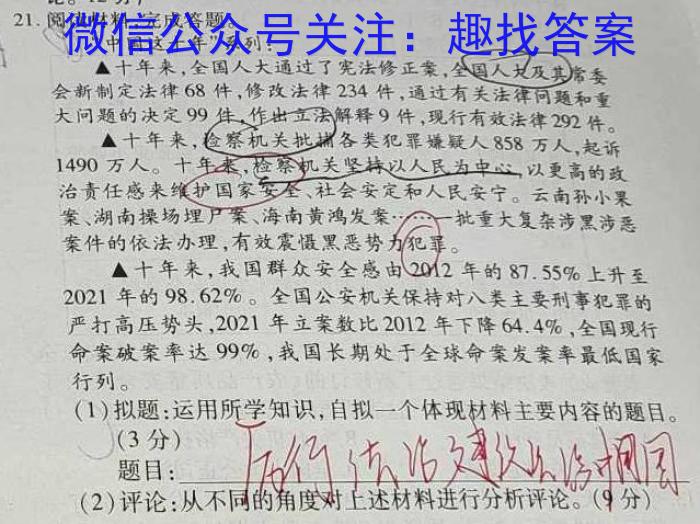 论。12分）
21. 阅读材料，完成答题。
微信公众号关注：趣找答案
“中国这十年”系列：
▲十年来，全国人大通过了宪法修正案，全国人大及其常委
会新制定法律68件，修改法律234件，通过有关法律问题和重
大问题的决定99件，作出立法解释9件，现行有效法律292件。
▲十年来，检察机关批捕各类犯罪嫌疑人858万人，起诉
1490万人。十年来，检察机关坚持以人民为中心，以更高的政
治责任感来维护国家安全、社会安定和人民安宁。云南孙小果
案、湖南操场埋尸案、海南黄鸿发案……一批重大复杂涉黑涉恶
案件的依法办理，有效震慑黑恶势力犯罪。
▲十年来，我国群众安全感由2012年的87.55%上升至
2021年的98.62%。全国公安机关保持对八类主要刑事犯罪的
严打高压势头，2021年立案数比2012年下降64.4%，全国现行
命案破案率达99%，我国长期处于全球命案发案率最低国家
行列。
(1)拟题：运用所学知识，自拟一个体现材料主要内容的题目。
(3分)
题目：厉行法治建设法治中国
(2)评论：从不同的角度对上述材料进行分析评论。(9分)